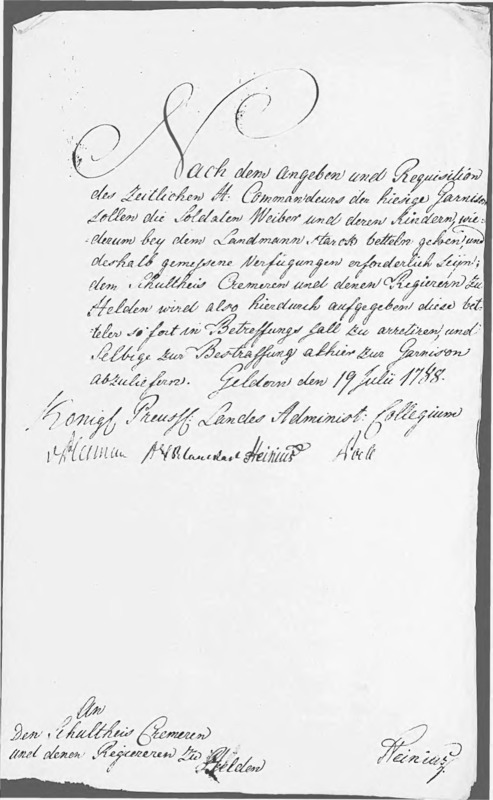 Nach dem angeben und Requisition
des Zeitlichen H. Commandeurs der hiesige Garnison
sollen die Soldaten Weiber und deren Kindern, wie-
derum bey dem Landmann starck betteln gehen, und
deshalb gemessene Verfügungen erforderlich seyn;
dem Schultheis Cremeren und denen Regierern zu
Helden wird also hierdurch aufgegeben diese bet-
teler so fort in Betreffungs fall zu arretiren, und
Selbige zur Bestraffung alhier zur Garnison
abzuliefern. Geldern den 19 Julii 1788.
Königl. Preuss. Landes Administ: Collegium
Heinius
An
Den Schultheis Cremeren
und denen Regiereren zu Helden
Heinius